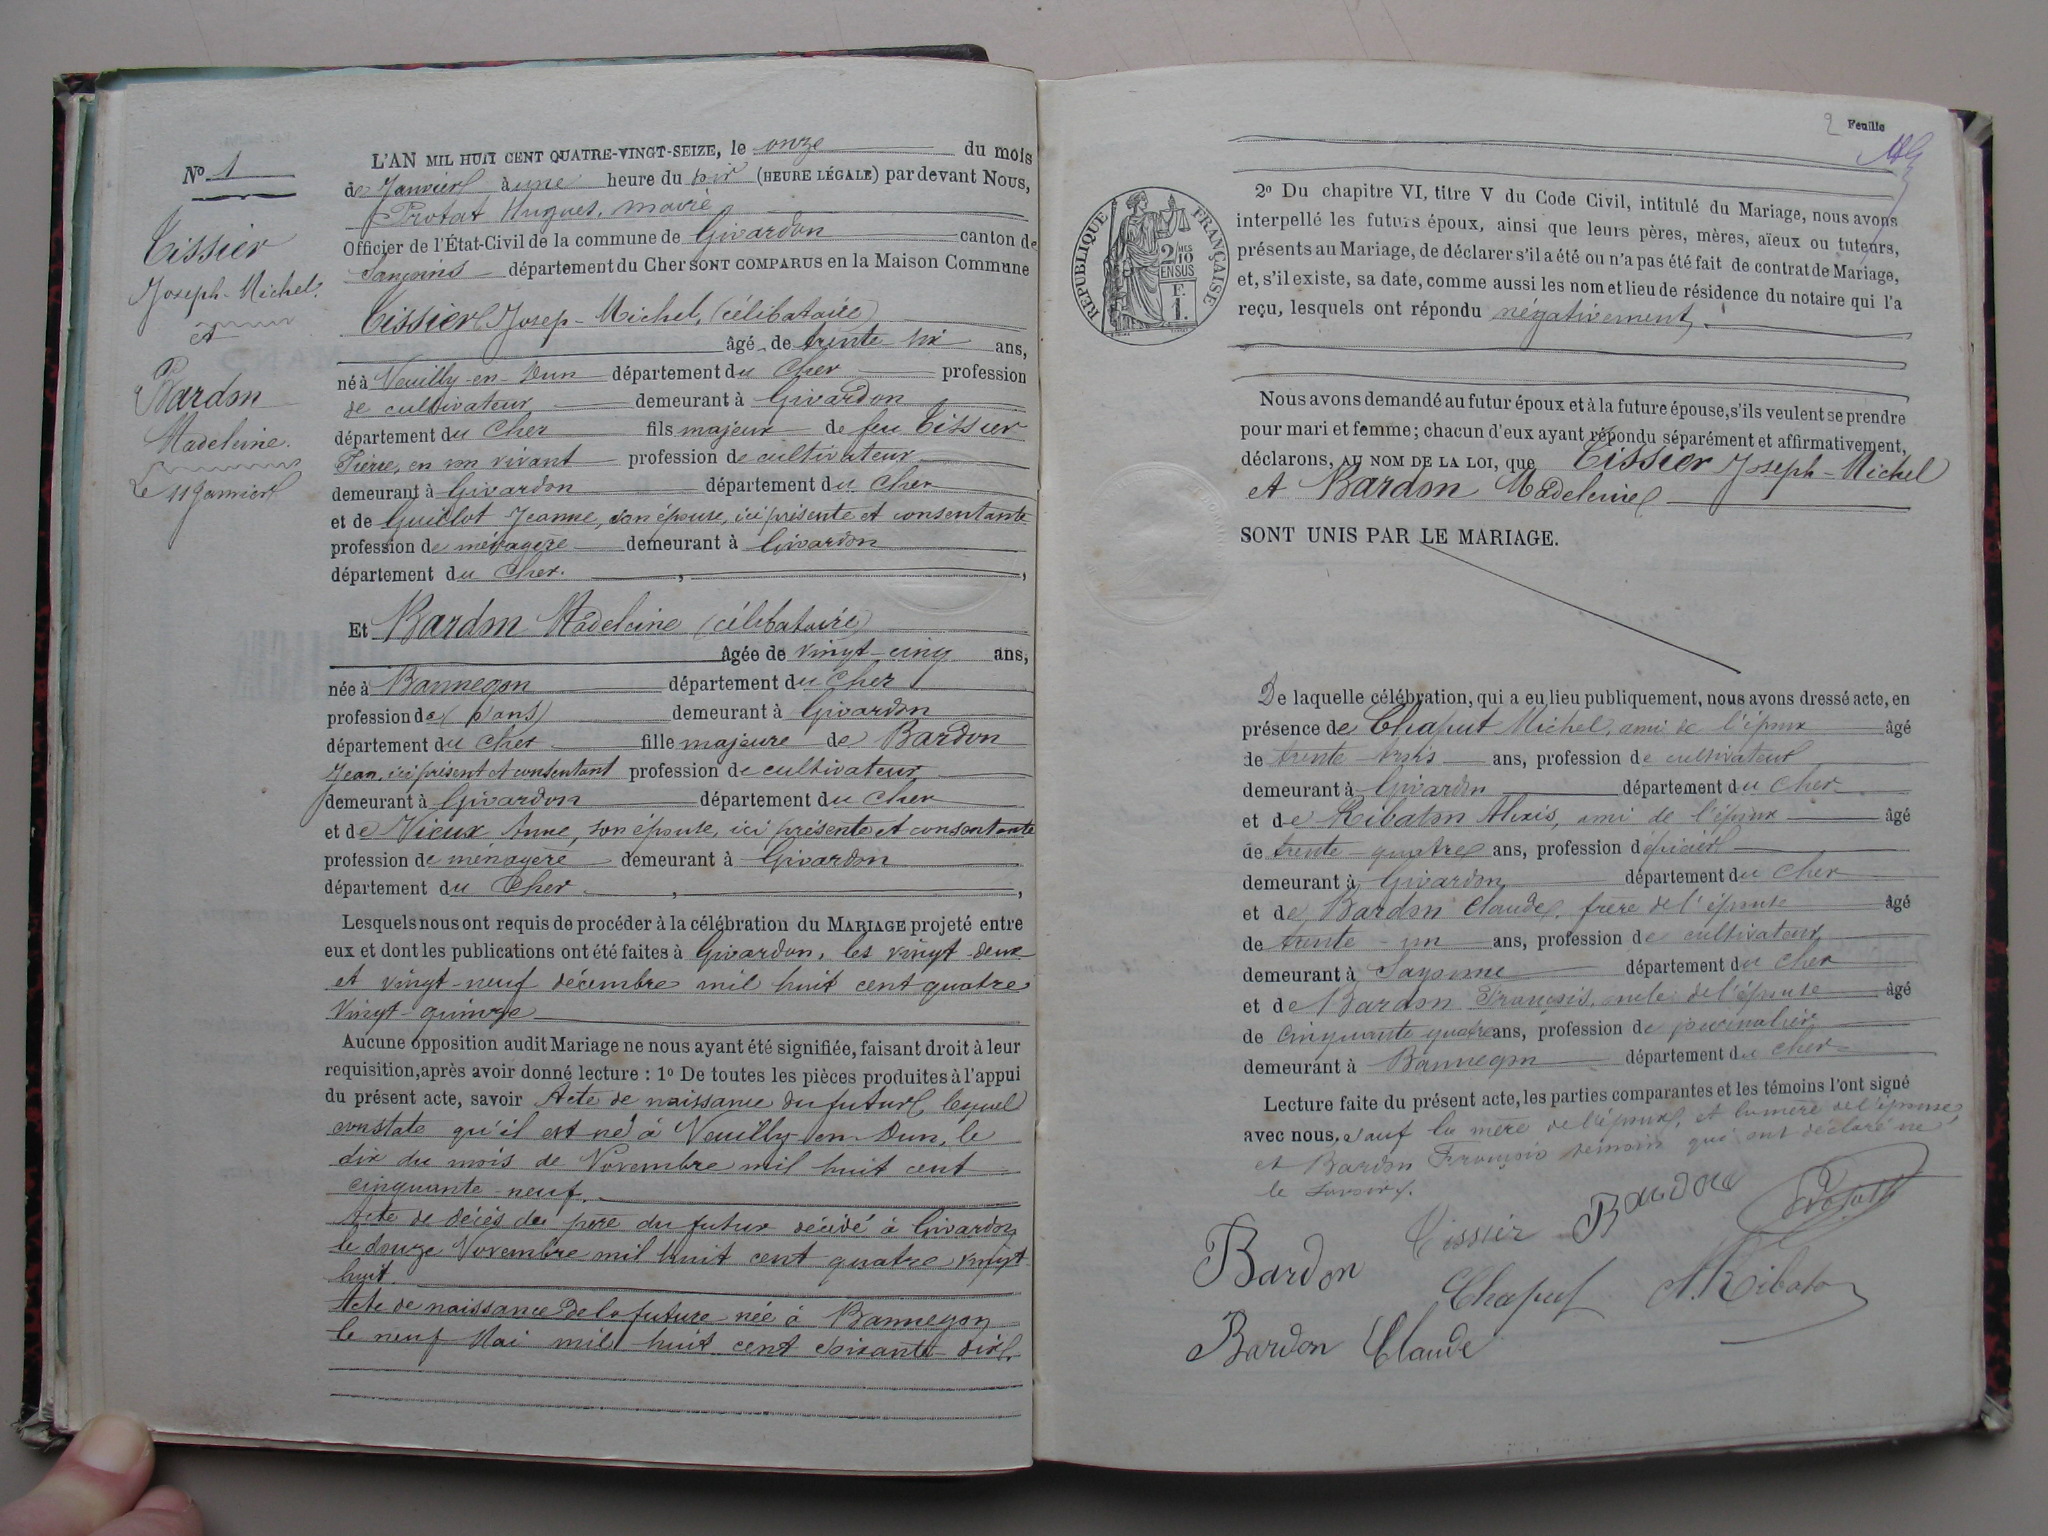 N° 1
Tissier
Joseph-Michel.
et
Bardon
Madeleine.
Le 11 Janvier
L'AN MIL HUIT CENT QUATRE-VINGT-SEIZE, le onze du mois
de Janvier à une heure du soir (HEURE LÉGALE) par devant Nous,
Protat Hugues, maire
Officier de l'État-Civil de la commune de Givardon canton de
Sancoins département du Cher SONT COMPARUS en la Maison Commune
Tissier Josep-Michel, (célibataire)
âgé de trente six ans,
né à Neuilly-en-Dun département du Cher profession
de cultivateur demeurant à Givardon
département du Cher fils majeur de feu Tissier
Pierre, en son vivant profession de cultivateur
demeurant à Givardon département du Cher
et de Guillot Jeanne, son épouse, ici présente et consentante
profession de ménagère demeurant à Givardon
département du Cher.
Et Bardon Madeleine (célibataire)
Âgée de vingt-cinq ans,
née à Bannegon département du Cher
profession de (sans) demeurant à Givardon
département du Cher fille majeure de Bardon
Jean, ici présent et consentant profession de cultivateur
demeurant à Givardon département du Cher
et de Vieux Anne, son épouse, ici présente et consentante
profession de ménagère demeurant à Givardon
département du Cher
Lesquels nous ont requis de procéder à la célébration du MARIAGE projeté entre
eux et dont les publications ont été faites à Givardon, les vingt-deux
et vingt-neuf décembre mil huit cent quatre
vingt-quinze
Aucune opposition audit Mariage ne nous ayant été signifiée, faisant droit à leur
requisition, après avoir donné lecture : 1° De toutes les pièces produites à l'appui
du présent acte, savoir Acte de naissance du futur, lequel
constate qu'il est né à Neuilly-en-Dun, le
dix du mois de Novembre mil huit cent
cinquante-neuf.
Acte de décès du père du futur décédé à Givardon
le douze Novembre mil huit cent quatre vingt
huit.
Acte de naissance de la future née à Bannegon
le neuf Mai mil huit cent soixante-dix.
2 Feuille
RÉPUBLIQUE FRANÇAISE
2/10 MES
EN SUS
F.
1.
2° Du chapitre VI, titre V du Code Civil, intitulé du Mariage, nous avons
interpellé les futurs époux, ainsi que leurs pères, mères, aïeux ou tuteurs,
présents au Mariage, de déclarer s'il a été ou n'a pas été fait de contrat de Mariage,
et, s'il existe, sa date, comme aussi les nom et lieu de résidence du notaire qui l'a
reçu, lesquels ont répondu négativement.
Nous avons demandé au futur époux et à la future épouse, s'ils veulent se prendre
pour mari et femme; chacun d'eux ayant répondu séparément et affirmativement,
déclarons, AU NOM DE LA LOI, que Tissier Joseph-Michel
et Bardon Madeleine
SONT UNIS PAR LE MARIAGE.
De laquelle célébration, qui a eu lieu publiquement, nous avons dressé acte, en
présence de Chaput Michel, ami de l'époux âgé
de trente-trois ans, profession de cultivateur
demeurant à Givardon département du Cher
et de Ribaton Alexis, ami de l'époux âgé
de trente-quatre ans, profession d'épicier
demeurant à Givardon département du Cher
et de Bardon Claude, frère de l'épouse âgé
de trente-un ans, profession de cultivateur
demeurant à Sagonne département du Cher
et de Bardon François, oncle de l'épouse âgé
de cinquante quatre ans, profession de journalier
demeurant à Bannegon département du Cher
Lecture faite du présent acte, les parties comparantes et les témoins l'ont signé
avec nous, sauf la mère de l'époux, et la mère de l'épouse,
et Bardon François témoin qui ont déclaré ne
le savoir.
Bardon Tissier Bardon Protat
Chaput A. Ribaton
Bardon Claude